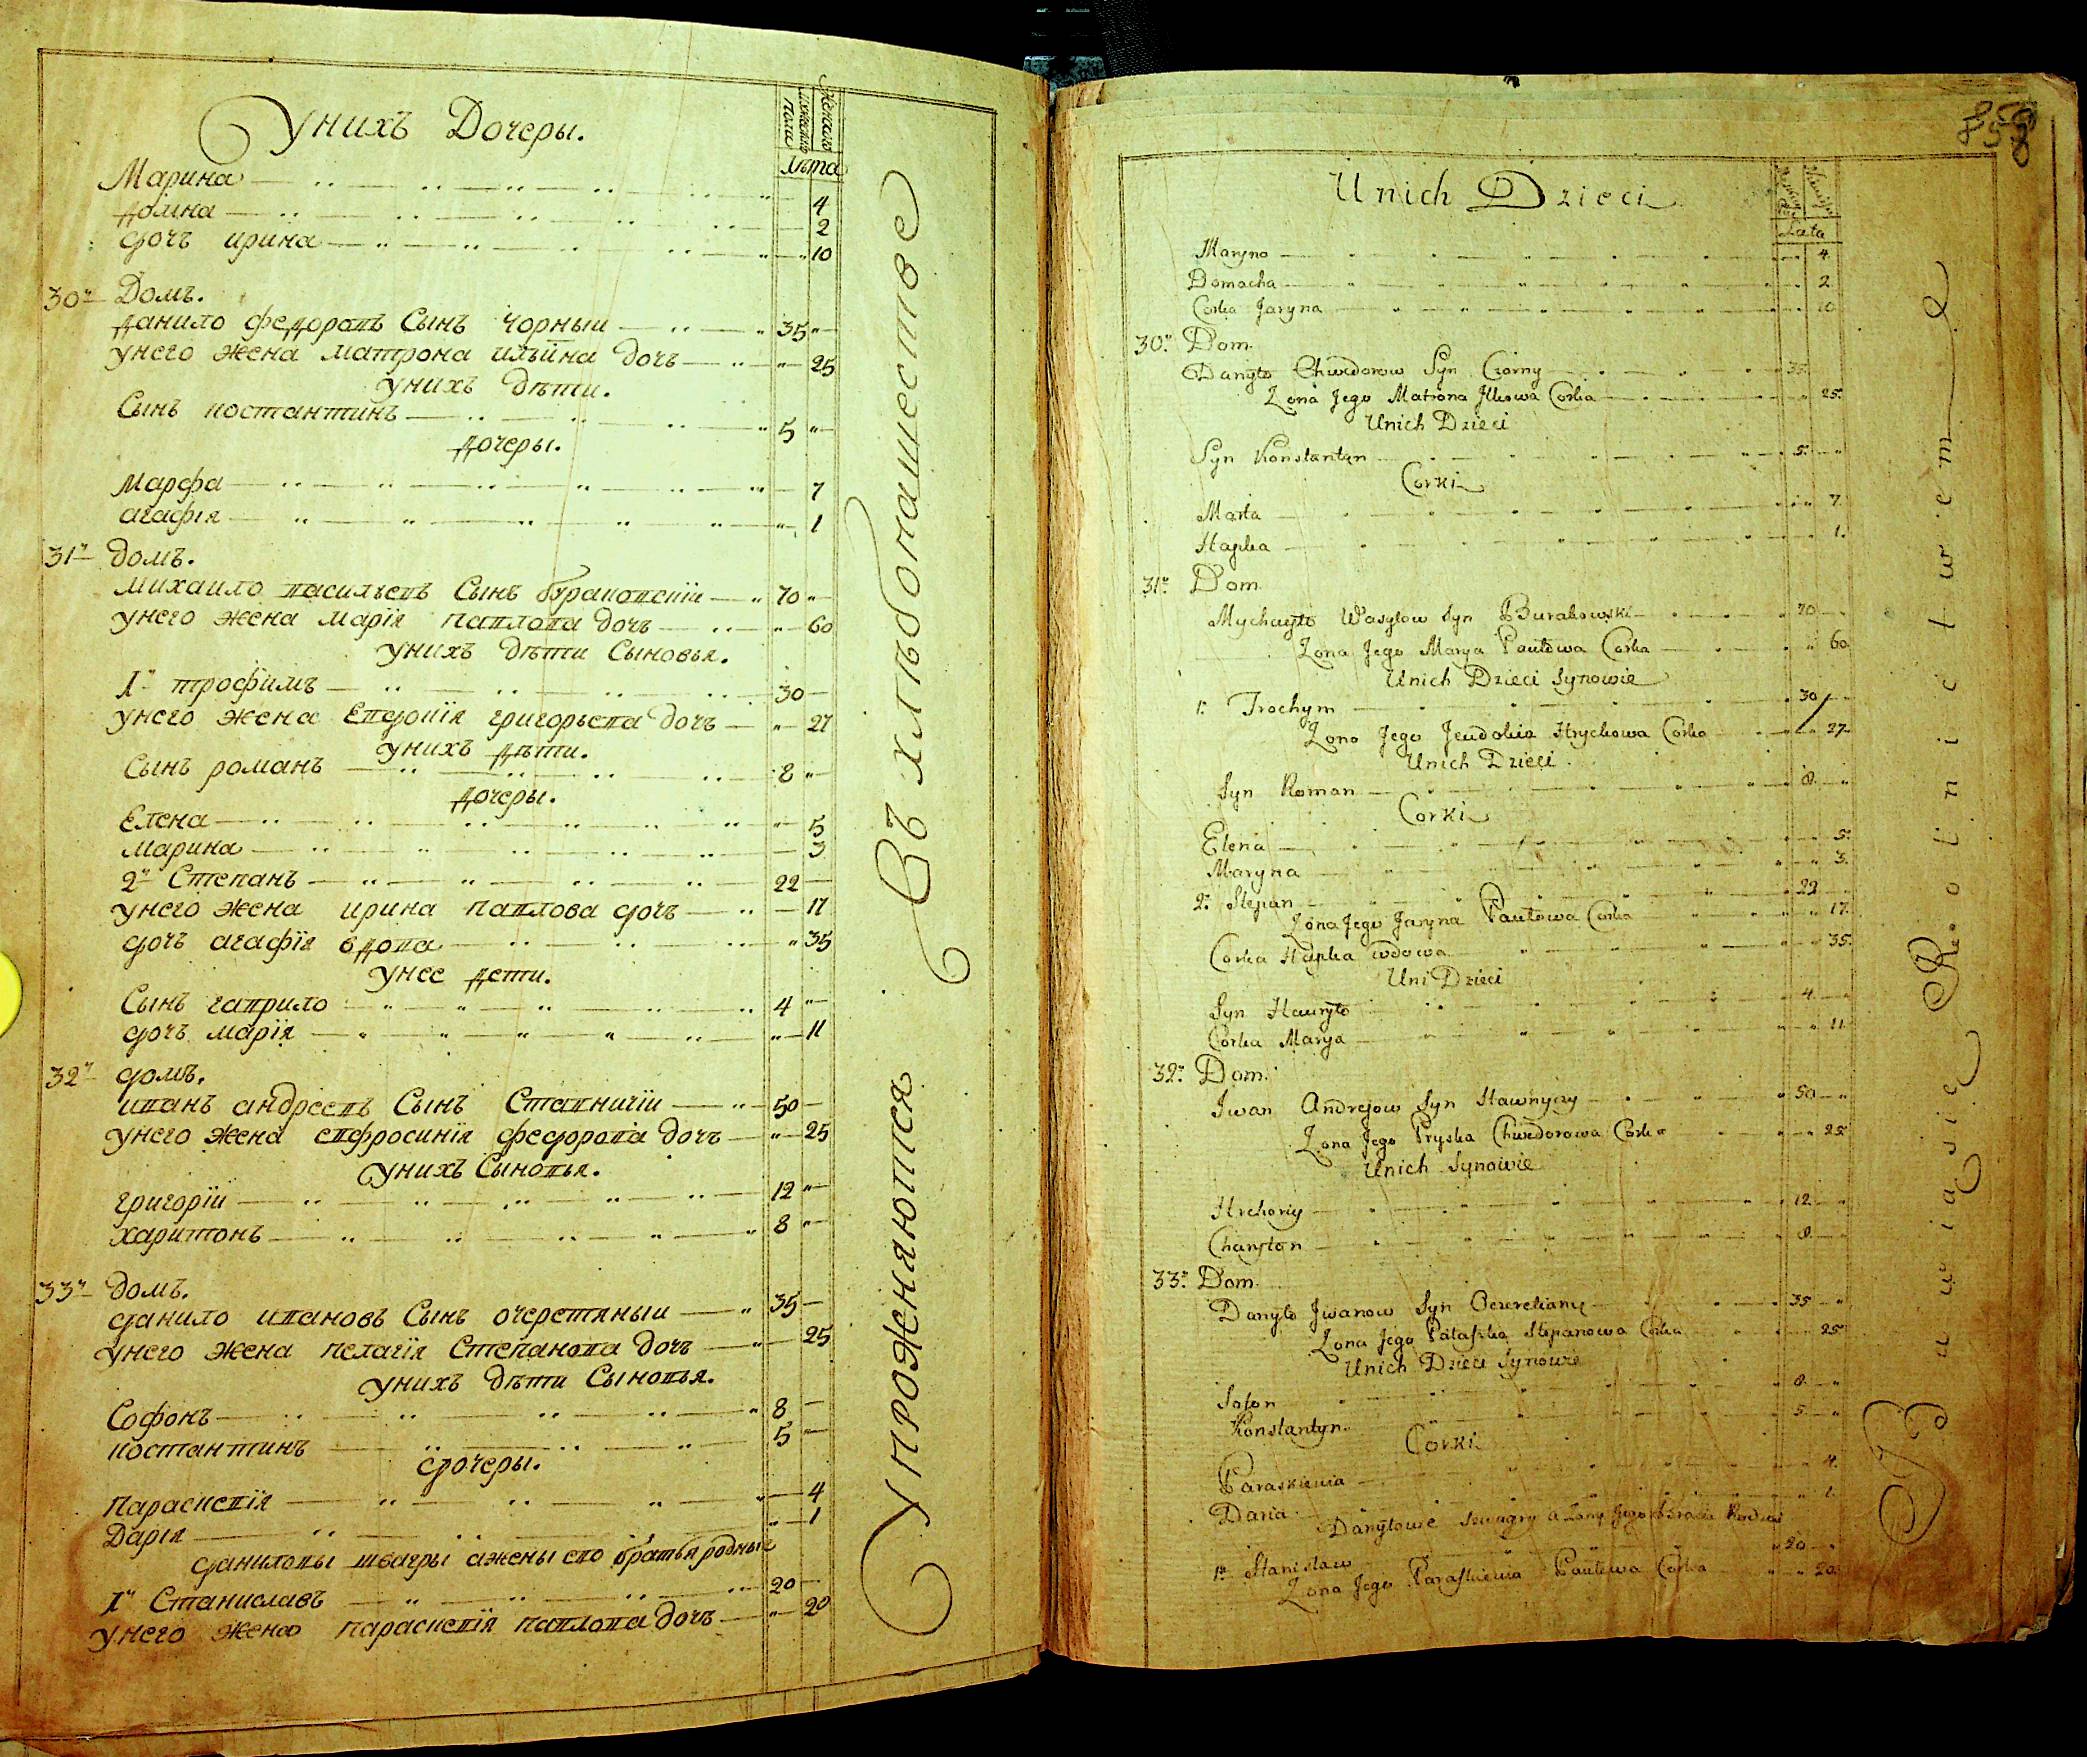 Унихъ Дочеры.
мужеска пола
женска
лѣта
Марина 4
домна 2
дочъ ирина 10
30й Домъ.
данило федоровъ Сынъ чорный 35
унего жена матрона илъйна дочъ 25
унихъ дѣти.
Сынъ костантинъ 5
дочеры.
Марфа 7
агафія 1
31й домъ.
михаило василъевъ Сынъ бураковскій 70
унего жена марія павлова дочъ 60
унихъ дѣти Сыновъя.
1й трофимъ 30
унего жена Евдокія григоръева дочъ 27
унихъ дѣти.
Сынъ романъ 8
дочеры.
Елена 5
марина 3
2й Степанъ 22
унего жена ирина павлова дочъ 17
дочъ агафія вдова 35
унее дети.
Сынъ гаврило 4
дочъ марія 11
32й домъ.
иванъ андреевъ Сынъ Ставничій 50
унего жена евфросинія федорова дочъ 25
унихъ Сыновъя.
григорій 12
харитонъ 8
33й домъ.
данило ивановъ Сынъ очеретяный 35
унего жена пелагія Степанова дочъ 25
унихъ дѣти Сыновъя.
Софонъ 8
костантинъ 5
дочеры.
параскевія 4
Дарія 1
даниловы швагры ажены его братъя родные
1й Станиславъ 20
унего жена параскевія павлова дочъ 20
Упроженяются Въ хлѣбопашестве
858
Unich Dzieci
Lata
Maryno 4
Domacha 2
Corka Jaryna 10
30. Dom.
Danyło Chwedorow Syn Czorny 35
Zona Jego Matrona Jlkowa Corka 25
Unich Dzieci
Syn Konstantyn 5
Corki
Marta 7
Hapka 1.
31. Dom.
Mychayło Wasylow Syn Burakowski 70
Zona Jego Marya Pawłowa Corka 60
Unich Dzieci Synowie
1. Trochym 30
Zona Jego Jeudokia Hryckowa Corka 27
Unich Dzieci
Syn Roman 8
Corki
Elena 5
Maryna 3.
2. Stepan 22
Zona Jego Jaryna Pawłowa Corka 17
Corka Hapka wdowa 35
Uni Dzieci
Syn Hawryło 4
Corka Marya 11
32. Dom.
Jwan Andrejow Syn Stawnyczy 50
Zona Jego Pryska Chwedorowa Corka 25
Unich Synowie
Hrehory 12
Charyton 8
33. Dom.
Danyło Jwanow Syn Oczeretiany 35
Zona Jego Pałaszka Stepanowa Corka 25
Unich Dzieci Synowie
Sofon 8
Konstantyn 5
Corki
Paraskiewia 4
Daria 1
Danyłowie Szwagry a Zony Jego Bracia Rodni
1. Stanisław 20
Zona Jego Paraskiewia Pawłowa Corka 20
Bawia sie Rolnictwem